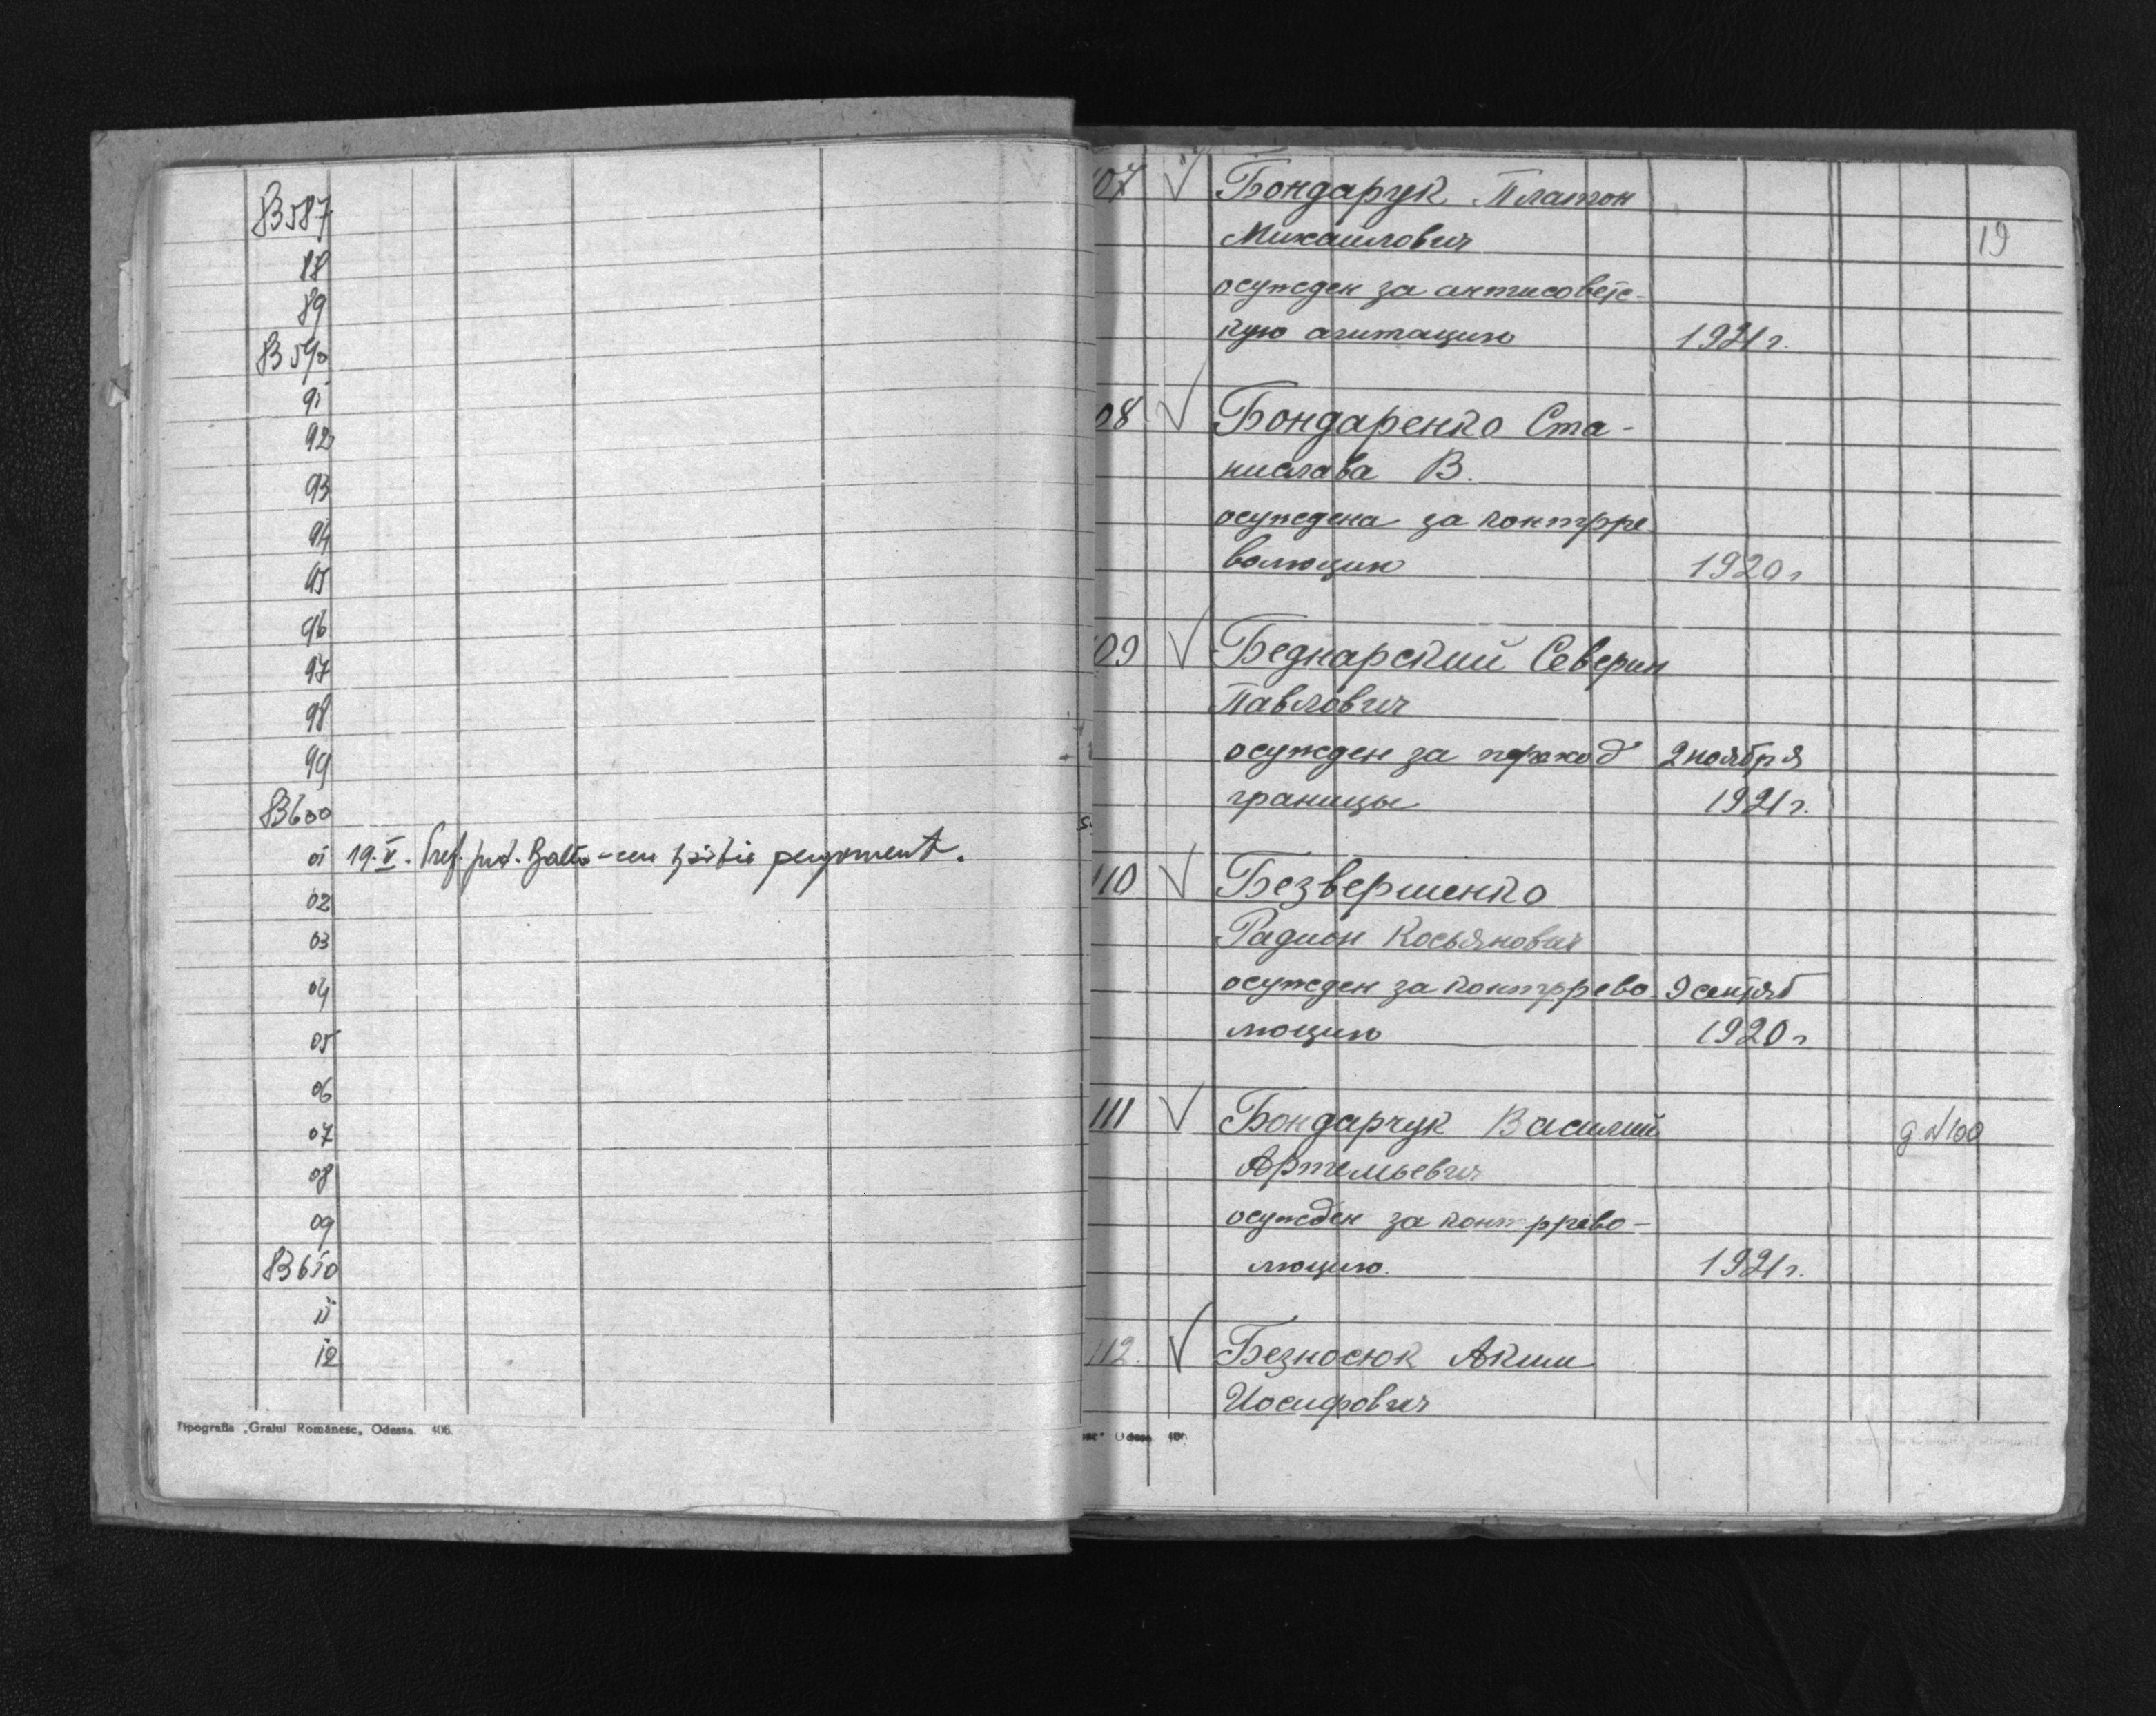 83587
88
89
83590
91
92
93
94
95
96
97
98
99
83600
01 19.V. Pref. jud. Balta - cu hârtie pergament.
02
03
04
05
06
07
08
09
83610
11
12
Tipografia „Graiul Românesc„ Odessa. 406.
107 √ Бондарук Платон
Михаилович
19
осужден за антисоветс-
кую агитацию 1921 г.
108 √ Бондаренко Ста-
нислава В.
осуждена за контрре
волюцию 1920 г
109 √ Беднарский Северин
Павлович
осужден за переход 2 ноября
границы 1921 г.
110 √ Безвершенко
Радион Косьянович
осужден за контррево 9 сентяб
люцию 1920 г
111 √ Бондарчук Василий
д №100
Артемьевич
осужден за контррево-
люцию. 1921 г.
112. √ Безносюк Аким
Иосифович